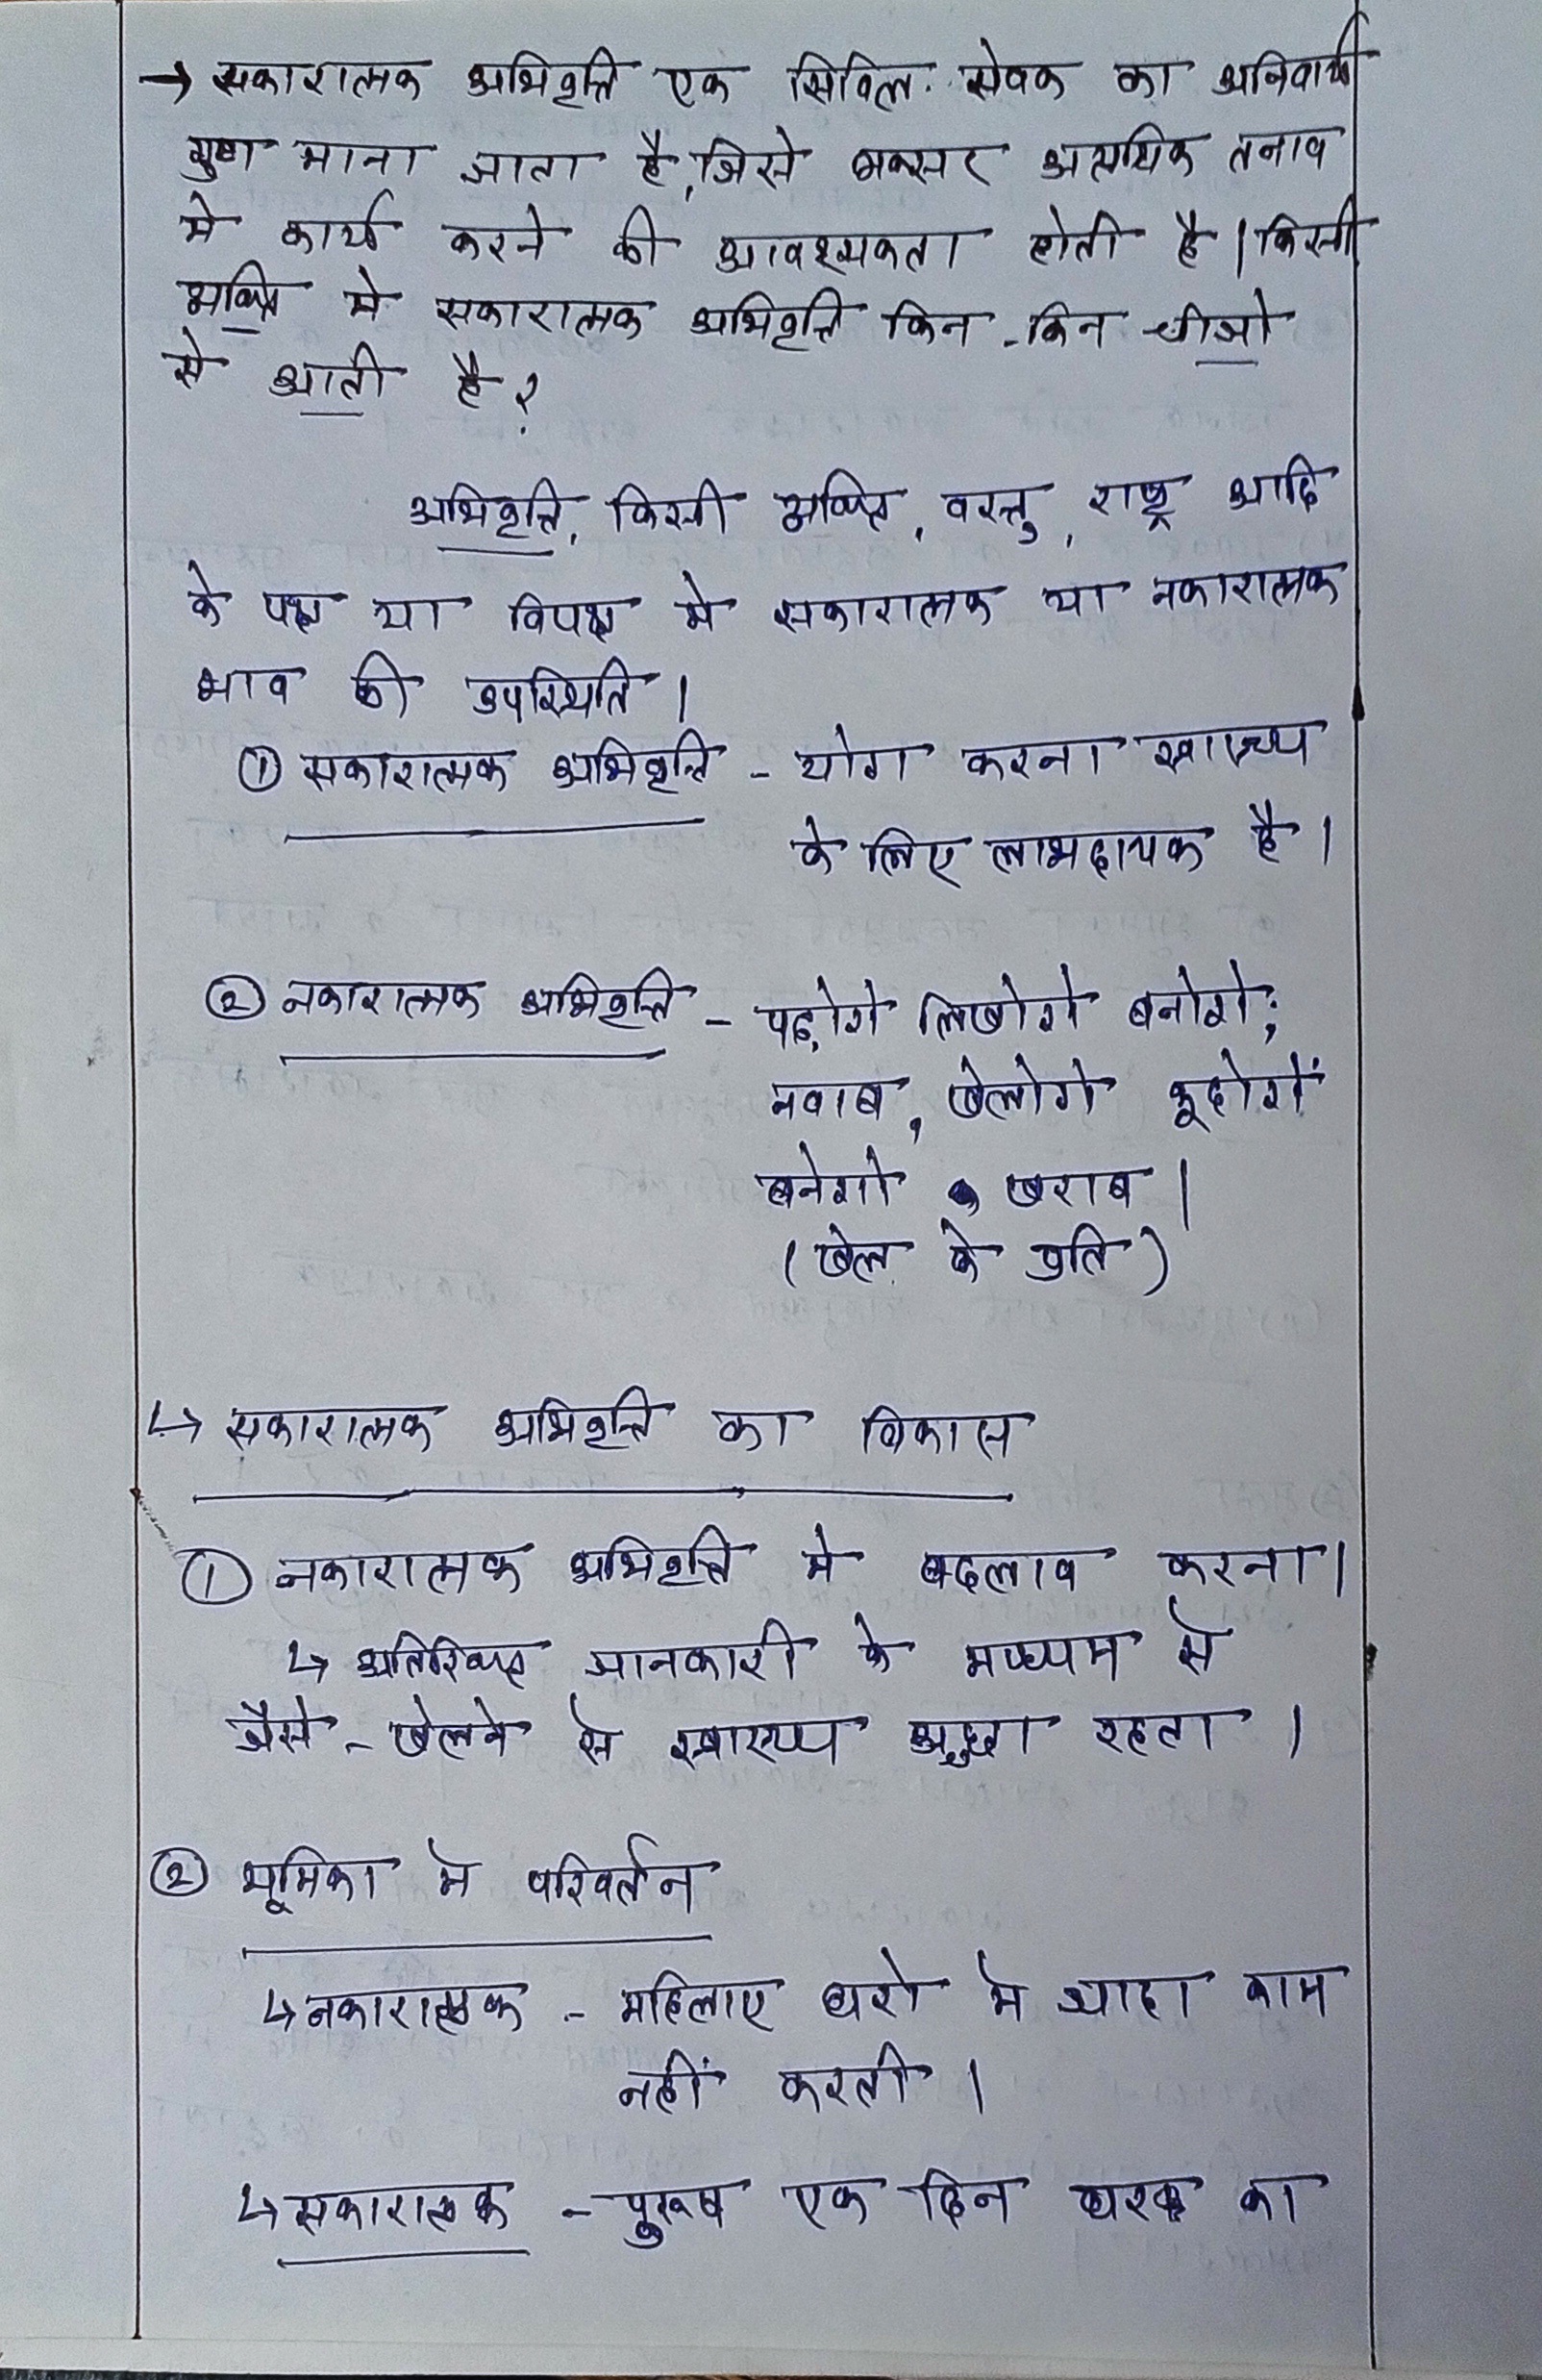 → सकारात्मक अभिवृत्ति एक सिविल सेवक का अनिवार्य
गुण माना जाता है, जिसे अक्सर अत्यधिक तनाव
मे कार्य करने की आवश्यकता होती है। किसी
व्यक्ति मे सकारात्मक अभिवृत्ति किन-किन चीजो
से आती है?
अभिवृत्ति, किसी व्यक्ति, वस्तु, राष्ट्र आदि
के पक्ष या विपक्ष मे सकारात्मक या नकारात्मक
भाव की उपस्थिति।
① सकारात्मक अभिवृत्ति - योग करना स्वास्थ्य
के लिए लाभदायक है।
② नकारात्मक अभिवृत्ति - पढ़ोगे लिखोगे बनोगे;
नवाब, खेलोगे कूदोगें
बनेगो खराब।
(खेल के प्रति)
↳ सकारात्मक अभिवृत्ति का विकास
① नकारात्मक अभिवृत्ति मे बदलाव करना।
↳ अतिरिक्त जानकारी के मध्यम से
जैसे - खेलने से स्वास्थ्य अच्छा रहता ।
② भूमिका मे परिवर्तन
↳ नकारात्मक - महिलाए घरो मे ज्यादा काम
नहीं करती ।
↳ सकारात्मक - पुरूष एक दिन घर का